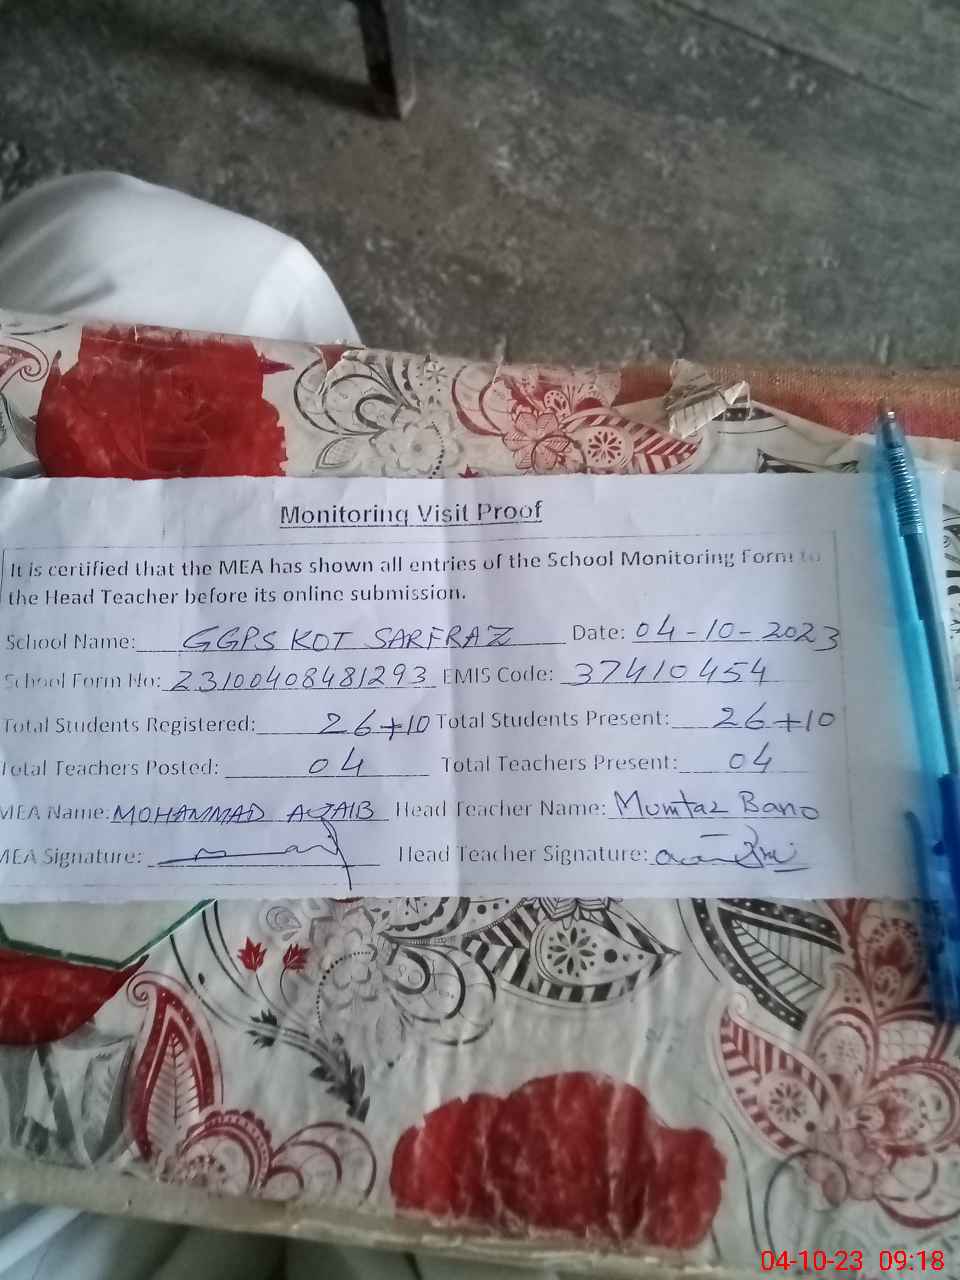 Monitoring Visit Proof
It is certified that the MEA has shown all entries of the School Monitoring Form to
the Head Teacher before its online submission.
School Name: GGPS KOT SARFRAZ Date: 04-10-2023
School Form No: 23100408481293 EMIS Code: 37410454
Total Students Registered: 26+10 Total Students Present: 26+10
Total Teachers Posted: 04 Total Teachers Present: 04
MEA Name: MOHAMMAD AQAIB Head Teacher Name: Mumtaz Bano
MEA Signature: Head Teacher Signature:
04-10-23 09:18